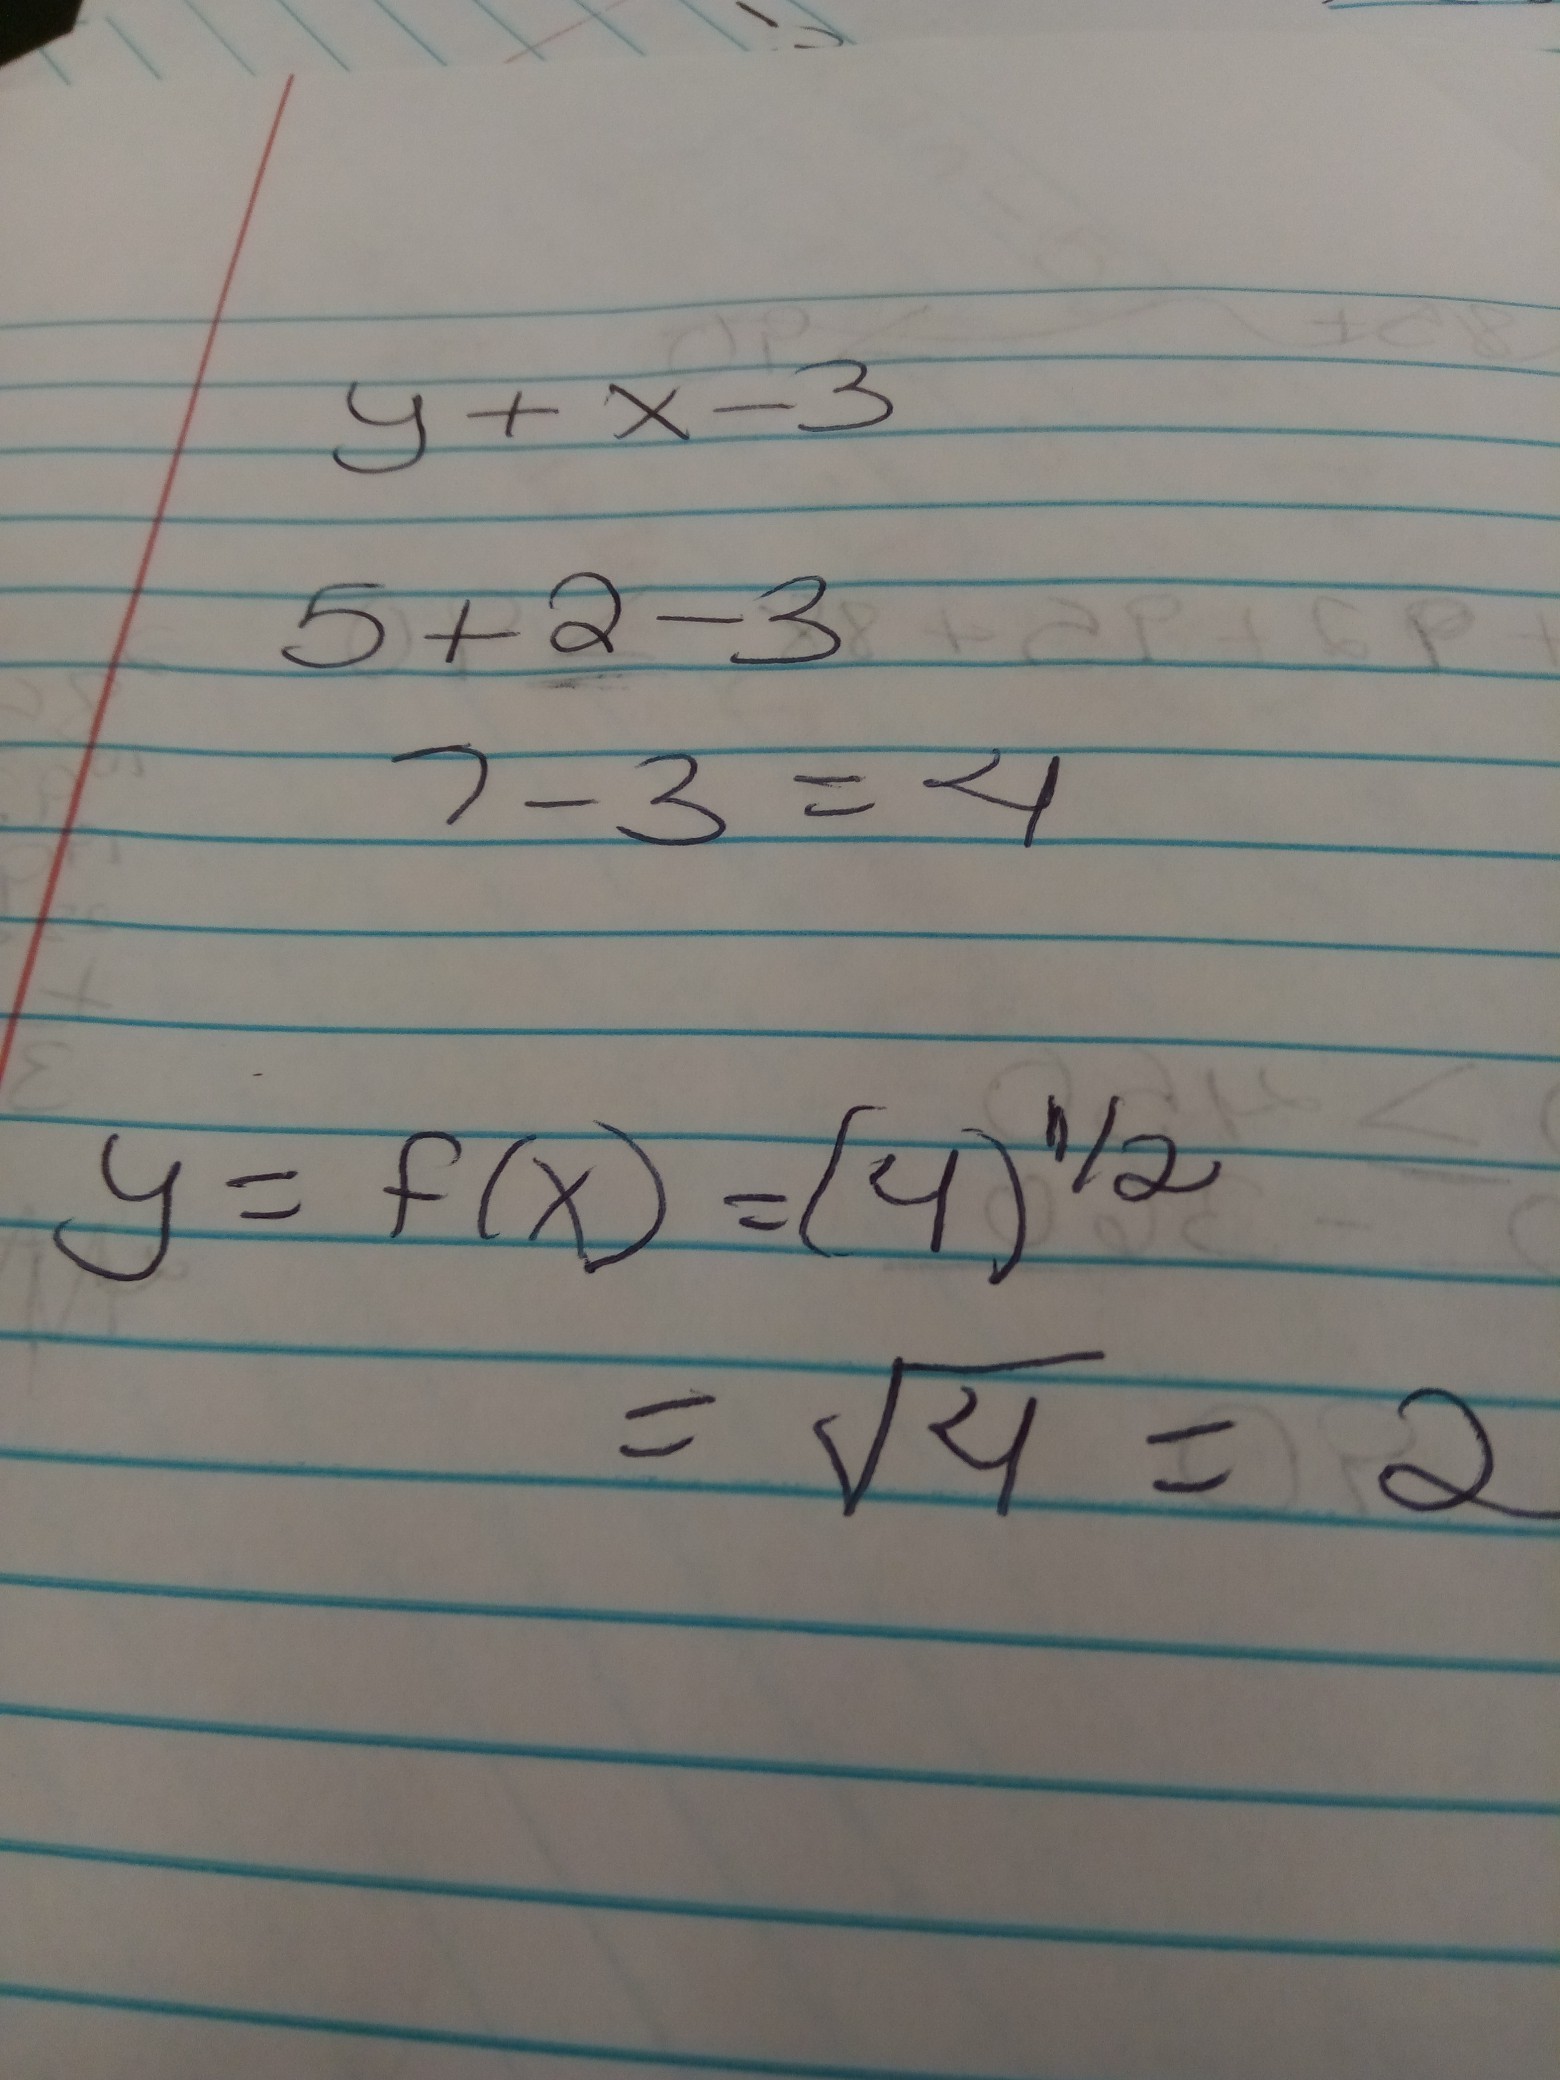 y + x - 3
5 + 2 - 3
7 - 3 = 4
y = f(x) = (4)^1/2
= √4 = 2